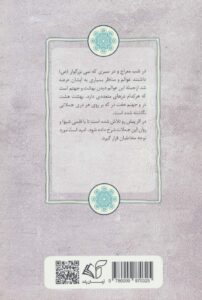 در شب معراج و در سیری که نبی بزرگوار (ص)
داشتند، عوالم و مناظر بسیاری به ایشان عرضه
شد ازجمله این عوالم دیدن بهشت و جهنم است
که هرکدام درهای متعددی دارد. بهشت هشت
در و جهنم هفت در که بر روی هر دری جملاتی
نگاشته شده است.
در اثر پیش رو تلاش شده است تا با قلمی شیوا و
روان این جملات شرح داده شود. امید است مورد
توجه مخاطبان قرار گیرد.